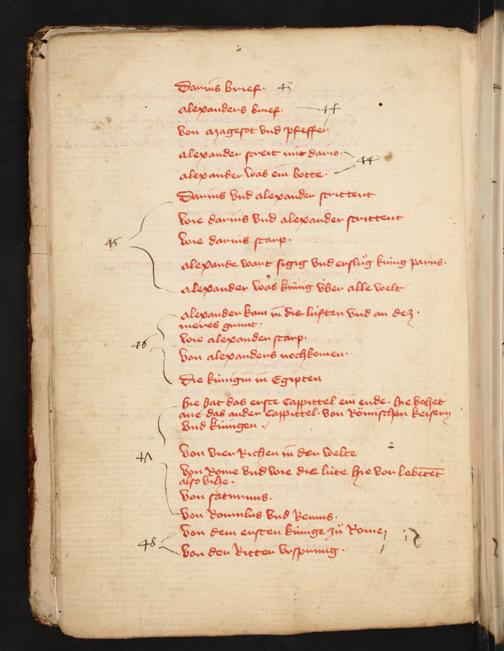 Darius brief · 43
Alexanders brief · 44
Von magesot vnd pfeffer
Alexander streit mit dario
Alexander was ein botte · 44
Darius vnd alexander strittent
Wie darius vnd alexander strittent
Wie darius starp ·
45
Alexander wart sigig vnd erslůg kúnig porus ·
Alexander was kúnig vber alle welt
Alexander kam in die lúften vnd an dez
meres grunt ·
46
Wie alexander starp ·
Von alexanders nochkomen ·
Die kúnigin in Egipten
Hie hat das erste Cappittel ein ende · hie vohet
ane das ander Cappittel · von Rômischen keisern
vnd kúnigen ·
47
Von vier Richen in der welte
Von Rome vnd wie die lúte hie vor lebetent
also vihe ·
Von saturnus ·
Von Romulus vnd Remus ·
Von dem ersten kúnige zů Rome
48
Von der Ritter vrsprung ·